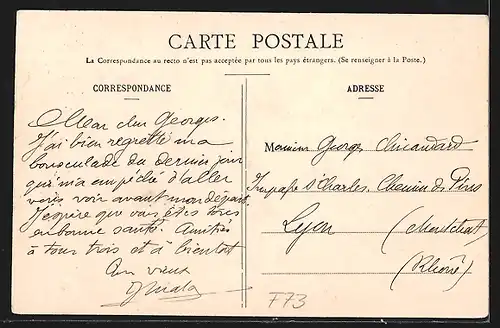 CARTE POSTALE
La Correspondance au recto n'est pas acceptée par tous les pays étrangers. (Se renseigner à la Poste.)
CORRESPONDANCE
Mon cher Georges.
J'ai bien regretté ma
bousculade du dernier jour
qui m'a empêché d'aller
vous voir avant mon départ.
J'espère que vous êtes tous
en bonne santé. Amitiés
à tous trois et à bientôt
Ton vieux
ADRESSE
Monsieur Georges
Impasse St Charles, Chemin des Pins
Lyon (Montchat)
(Rhône)
F73